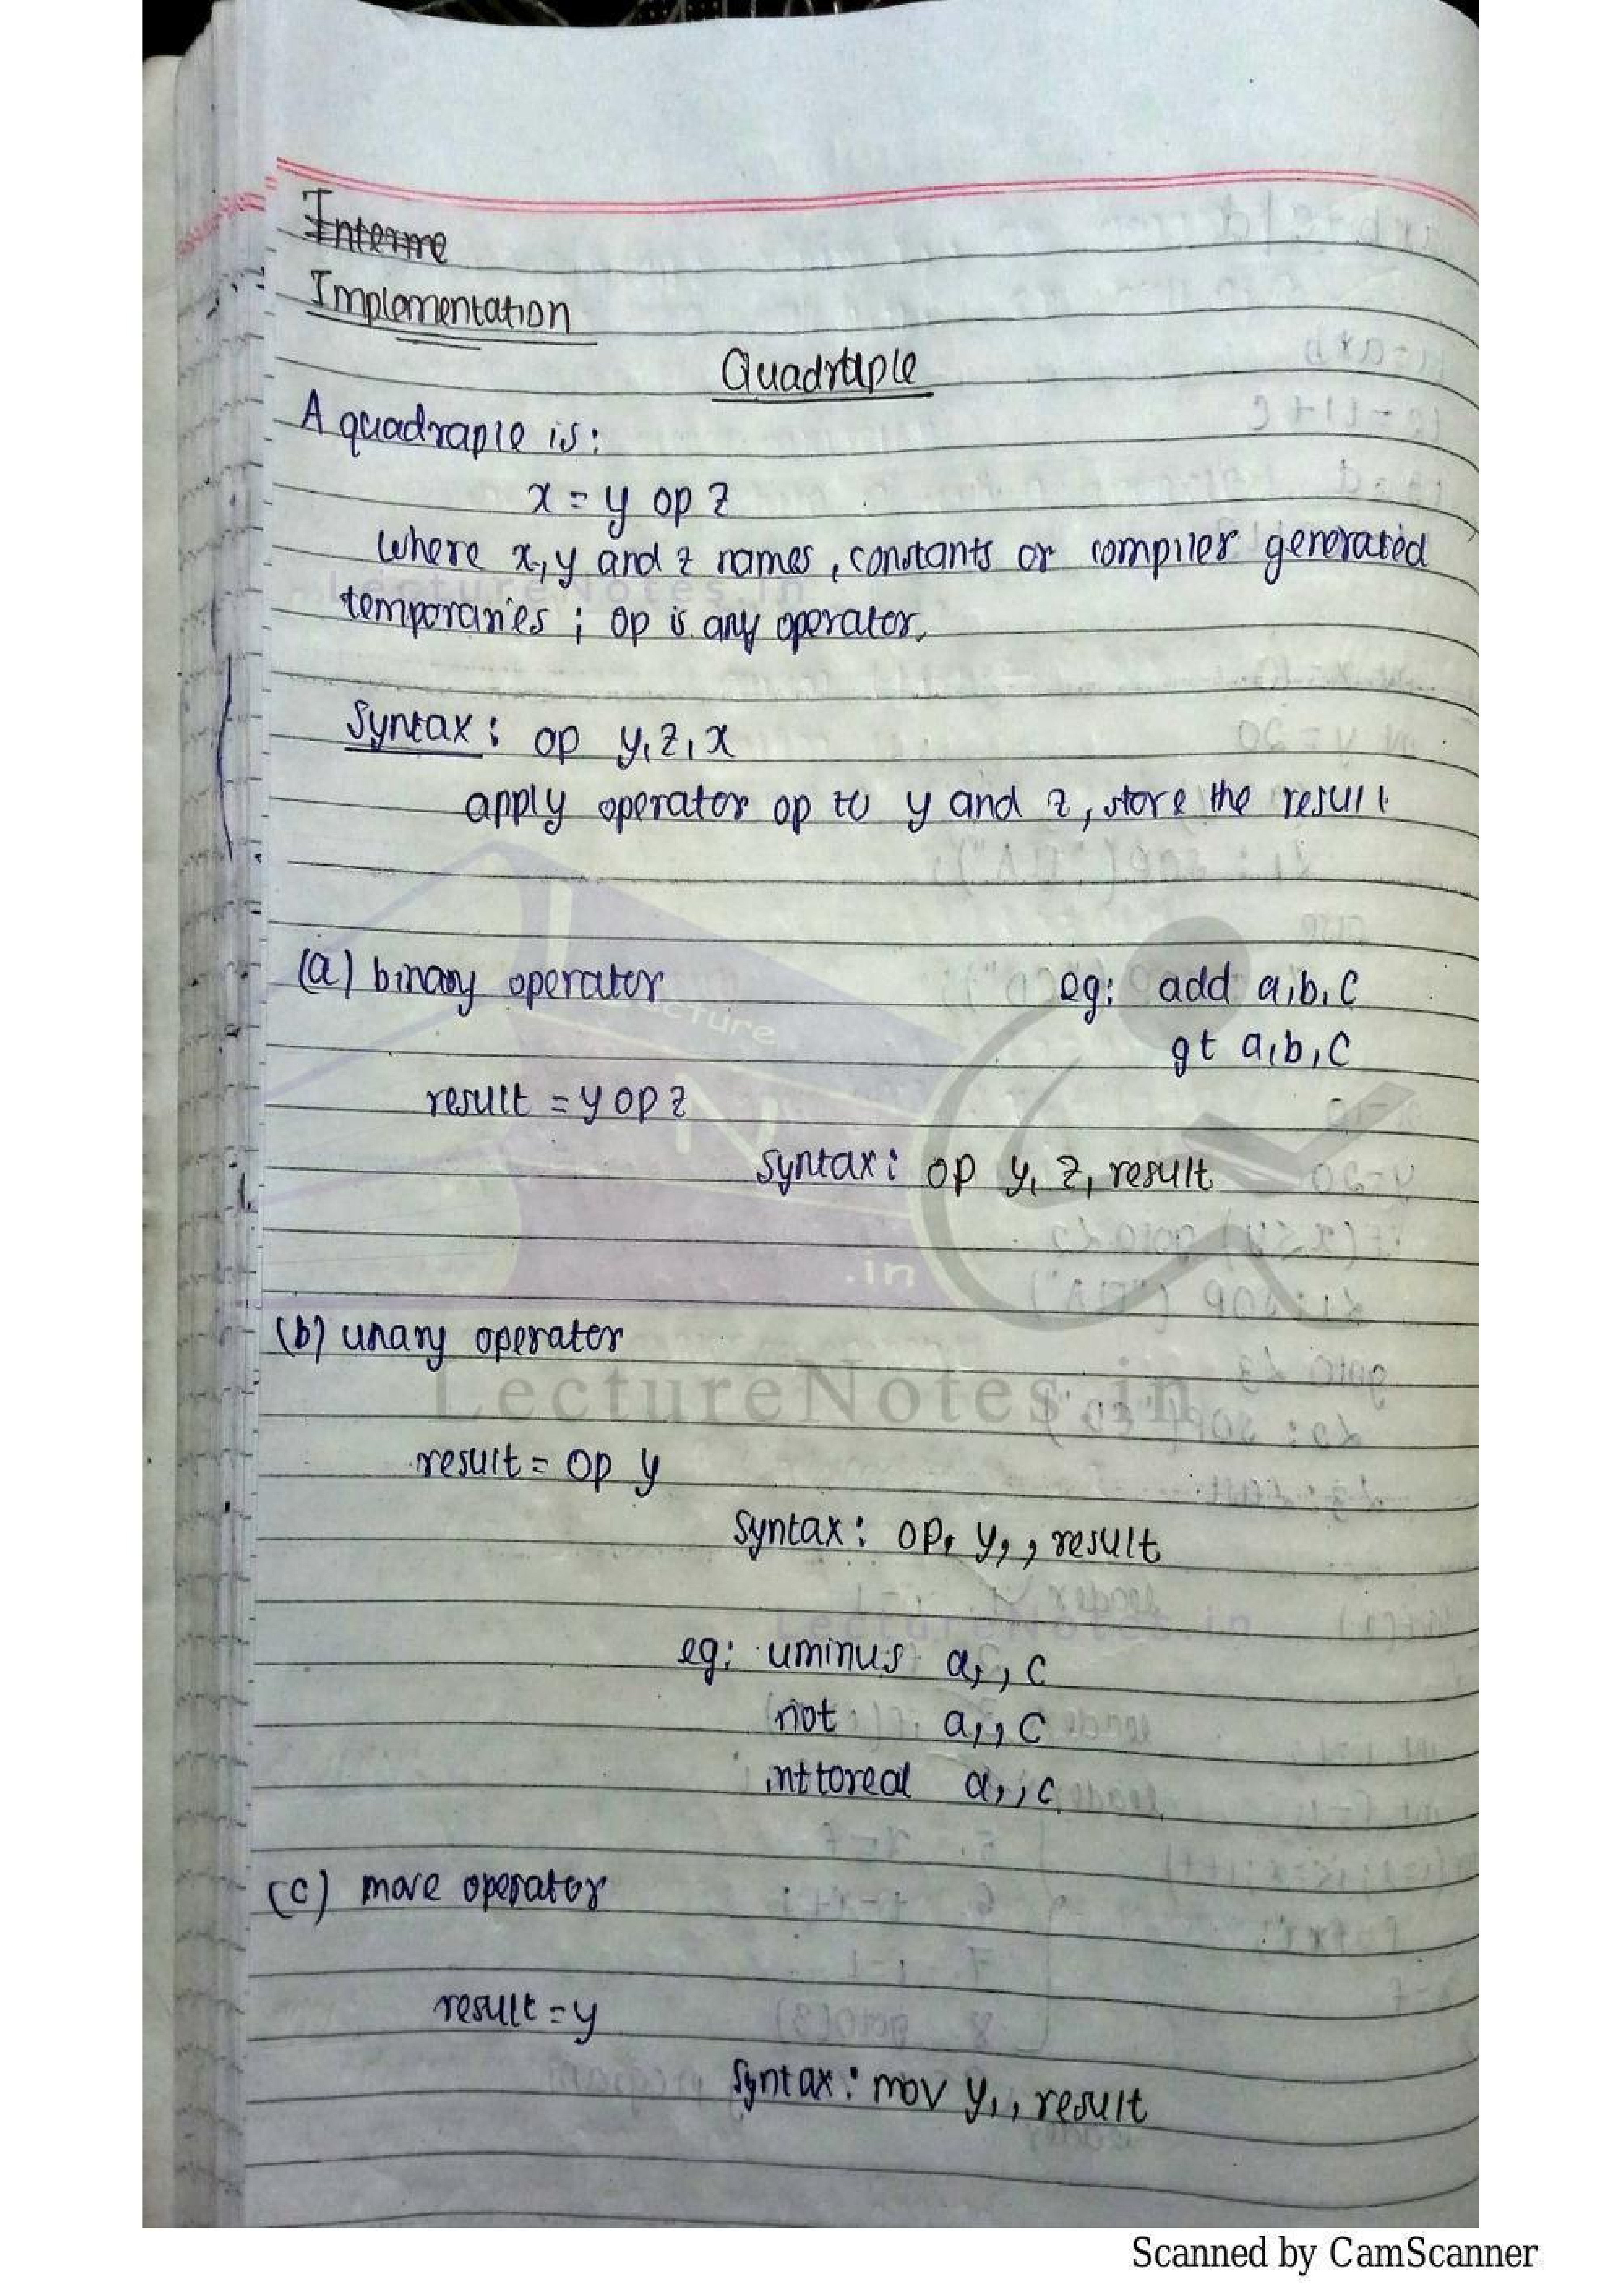 Interme
Implementation
Quadraple
A quadraple is:
x = y op z
where x, y and z names, constants or compiler generated
LectureNotes.in
temporaries ; op is any operator.
Syntax: op y, z, x
apply operator op to y and z, store the result
(a) binary operator eg: add a, b, c
gt a, b, c
result = y op z
Syntax: op y, z, result
.in
(b) unary operator
LectureNotes.in
result = op y
Syntax: op, y, , result
LectureNotes.in
eg: uminus a, , c
not a, , c
inttoreal a, , c
(c) move operator
result = y
Syntax: mov y, , result
Scanned by CamScanner